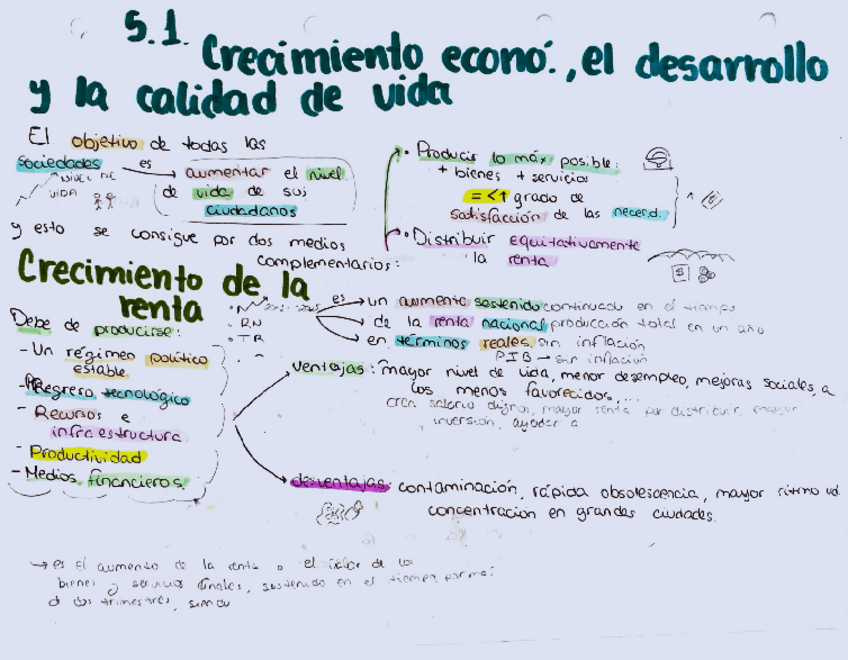 5.1. Crecimiento econó., el desarrollo
y la calidad de vida
El objetivo de todas las
sociedades es aumentar el nivel
de vida de sus
ciudadanos
NIVEL DE
VIDA
y esto se consigue por dos medios
complementarios:
• Producir lo máx posible:
+ bienes + servicios
= <↑ grado de
satisfacción de las necesd.
• Distribuir equitativamente
la renta
Crecimiento de la
renta
• RN
• TR
es → un aumento sostenido continuado en el tiempo
→ de la renta nacional producción total en un año
→ en términos reales, sin inflación
PIB → sin inflación
Debe de producirse:
- Un régimen político
estable
- Progreso tecnológico
- Recursos e
infraestructura
- Productividad
- Medios financieros
ventajas: mayor nivel de vida, menor desempleo, mejoras sociales, a
los menos favorecidos,...
crea salario dignos, mayor renta por distribuir, mayor
inversión, ayudar a
desventajas: contaminación, rápida obsolescencia, mayor ritmo vd.
concentración en grandes ciudades.
→ es el aumento de la renta o el valor de los
bienes y servicios finales, sostenido en el tiempo, por
dos trimestres,